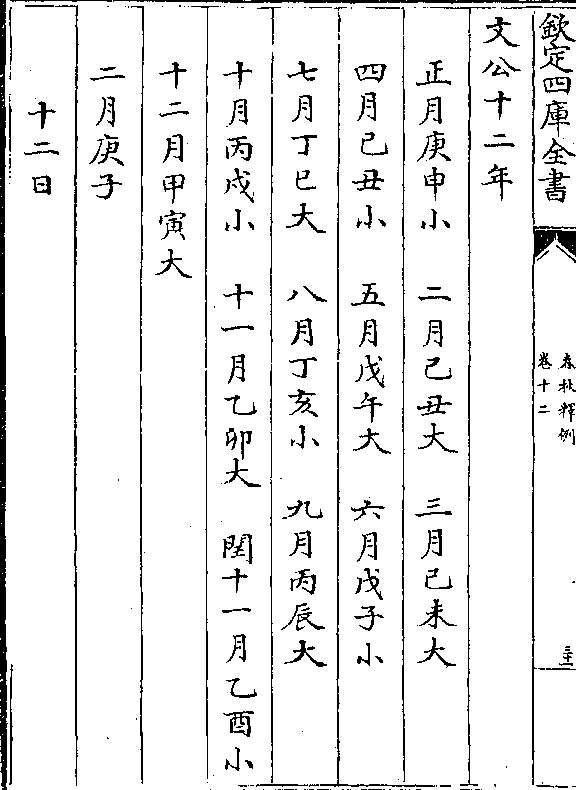 欽定四庫全書
春秋釋例
卷十二
三十一
文公十二年
正月庚申小 二月己丑大 三月己未大
四月己丑小 五月戊午大 六月戊子小
七月丁巳大 八月丁亥小 九月丙辰大
十月丙戌小 十一月乙卯大 閏十一月乙酉小
十二月甲寅大
二月庚子
十二日